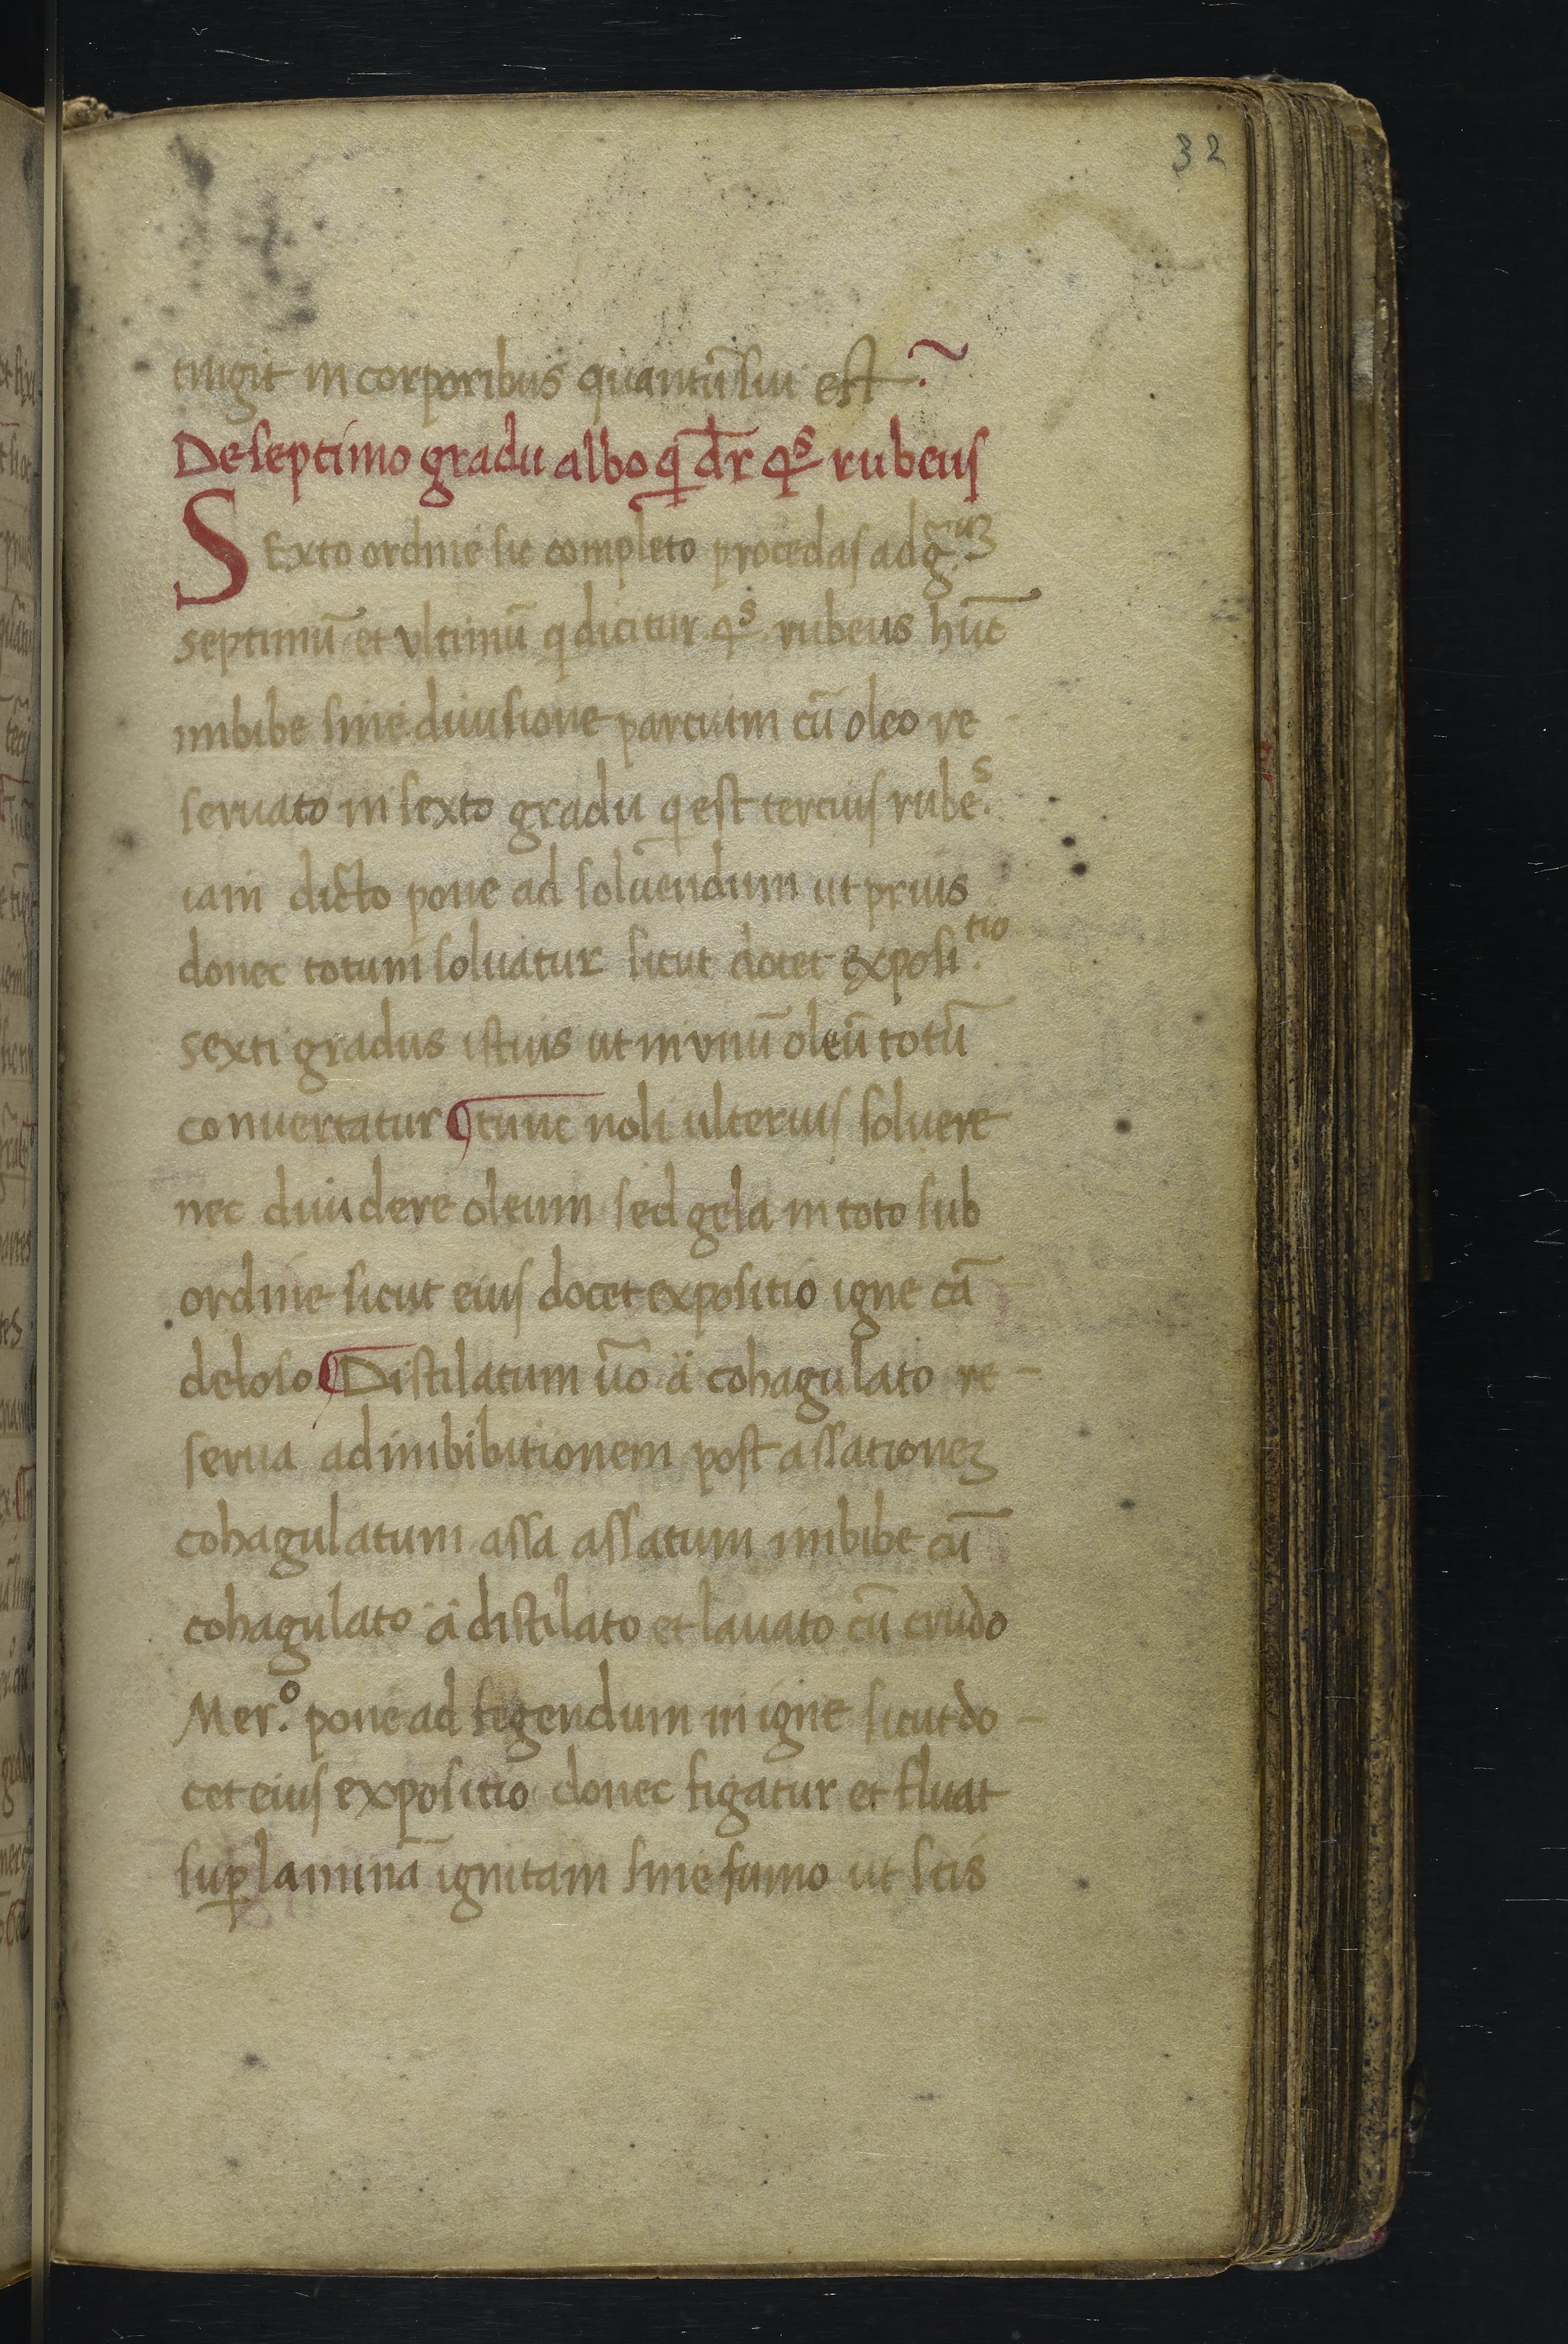 32
tingit in corporibus quantū sui est
De septimo gradu albo q dr̄ 4ˢ rubeus
SExto ordine sic completo procedas ad g̃.uʒ
septimū et vltimū q dicitur 4ˢ rubeus hūc
imbibe sine diuisione partium cū oleo re
seruato in sexto gradu q est tercius rubeˢ.
iam dicto pone ad soluendum ut prius
donec totum soluatur sicut docet exposi.ᵗⁱᵒ
sexti gradus istius ut in vnū oleū totū
conuertatur ¶ tunc noli ulterius soluere
nec diuidere oleum sed gela in toto sub
ordine sicut eius docet expositio igne cā
deloso ¶ Distilatum ūo ä cohagulato re-
serua ad imbibitionem post assationeʒ
cohagulatum assa assatum imbibe cū
cohagulato ä distilato et lauato cū crudo
Mer.º pone ad figendum in igne sicut do-
cet eius expositio donec figatur et fluat
suꝑ laminā ignitam sine fumo ut scis